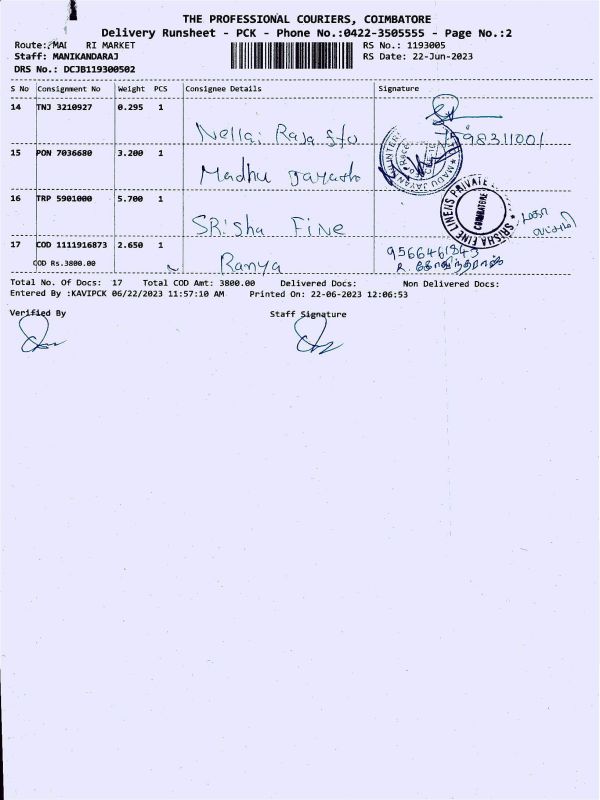 THE PROFESSIONAL COURIERS, COIMBATORE
Delivery Runsheet - PCK - Phone No.:0422-3505555 - Page No.:2
Route: RI MARKET RS No.: 1193005
Staff: MANIKANDARAJ RS Date: 22-Jun-2023
DRS No.: DCJB119300502
S No Consignment No Weight PCS Consignee Details Signature
14 TNJ 3210927 0.295 1
Nellai Raja
15 PON 7036680 3.200 1
Madhu
16 TRP 5901000 5.700 1
SRisha Fine
SRISHA FINE LINENS PRIVATE COIMBATORE
17 COD 1111916873 2.650 1
COD Rs.3800.00 Ranya
Total No. Of Docs: 17 Total COD Amt: 3800.00 Delivered Docs: Non Delivered Docs:
Entered By :KAVIPCK 06/22/2023 11:57:10 AM Printed On: 22-06-2023 12:06:53
Verified By Staff Signature